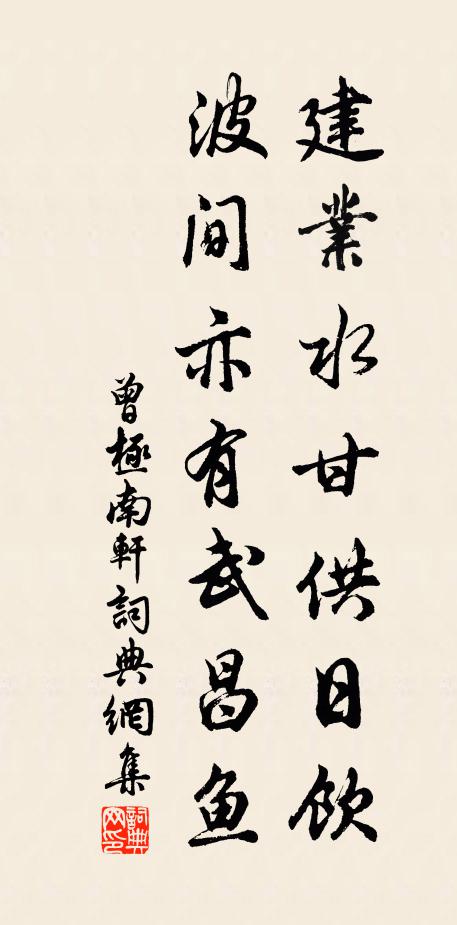 建業水甘供日飲
波间亦有武昌鱼
曾極南軒詞典網集
詞典
网印